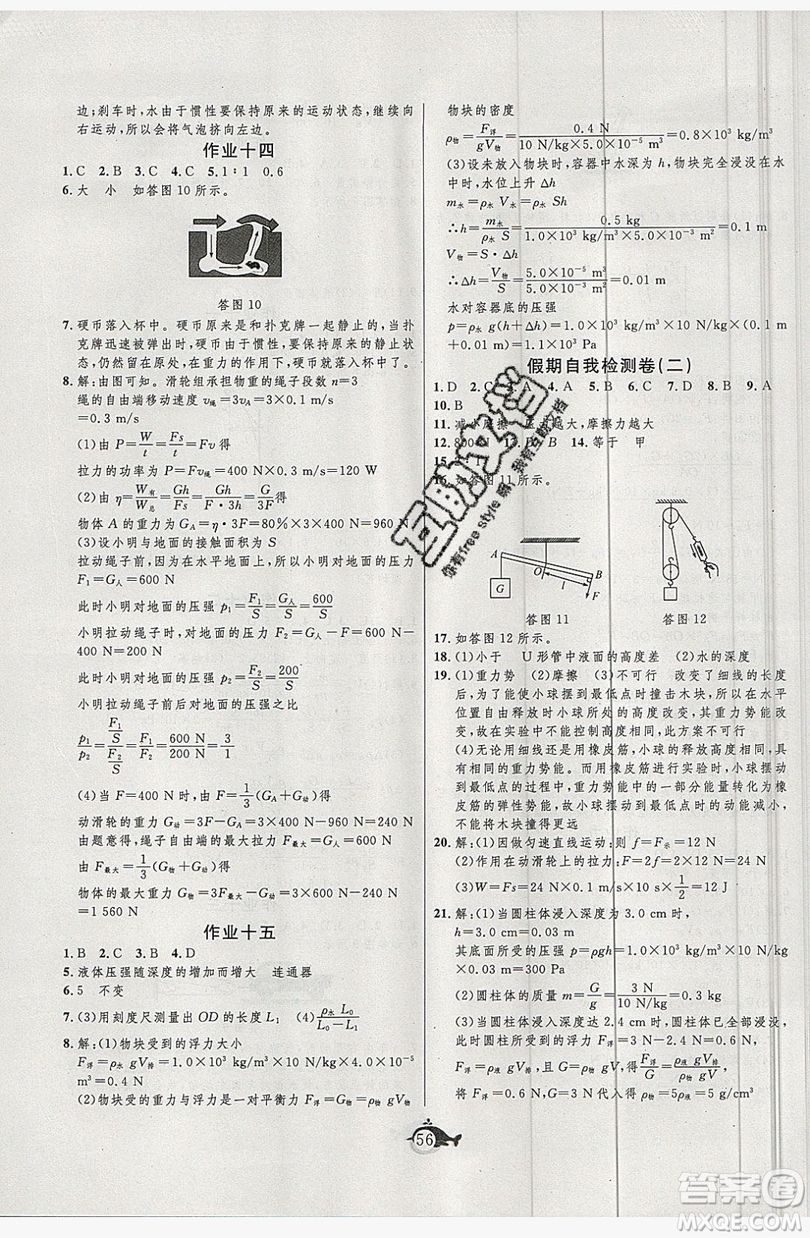 边;刹车时,水由于惯性要保持原来的运动状态,继续向
右运动,所以会将气泡挤向左边。
作业十四
1.C 2.B 3.C 4.C 5.1∶1 0.6
6.大 小 如答图10所示。
答图10
7.硬币落入杯中。硬币原来是和扑克牌一起静止的,当扑
克牌迅速被弹出时,硬币由于惯性要保持原来的静止状
态,仍然留在原处,在重力的作用下,最后落入杯中。
8.解:由图可知。滑轮组承担物重的绳子段数 n=3
绳的自由端移动速度 v绳=3vA=3×0.1 m/s
=0.3 m/s
(1)由 P=W/t=Fs/t=Fv 得
拉力的功率为 P=Fv绳=400 N×0.3 m/s=120 W
(2)由 η=W有/W总=Gh/Fs=Gh/F·3h=G/3F得
物体 A 的重力为 GA=η·3F=80%×3×400 N=960 N
(3)设小明与地面的接触面积为 S
拉动绳子前,因为在水平地面上,所以小明对地面的压力
F1=G人=600 N
此时小明对地面的压强 p1=F1/S=G人/S=600/S
小明拉动绳子时,对地面的压力 F2=G人-F=600 N-400 N=200 N
此时小明对地面的压强 p2=F2/S=200/S
小明拉动绳子前后对地面的压强之比
p1/p2=(F1/S)/(F2/S)=600 N/200 N=3/1
(4)当 F=400 N时,由 F=1/3(GA+G动)得
动滑轮的重力 G动=3F-GA=3×400 N-960 N=240 N
由题意得,绳子自由端的最大拉力 F最大=G人=600 N
由 F最大=1/3(G物+G动)得
物体的最大重力 G物=3F最大-G动=3×600 N-240 N
=1 560 N
作业十五
1.B 2.C 3.B 4.D
5.液体压强随深度的增加而增大 连通器
6.5 不变
7.(3)用刻度尺测量出 OD 的长度 L1 (4)ρ水L0/(L0-L1)
8.解:(1)物块受到的浮力大小
F浮=ρ水gV排=1.0×10³ kg/m³×10 N/kg×4.0×10⁻⁵ m³
=0.4 N
(2)物块受的重力与浮力是一对平衡力 F浮=G物=ρ物gV物
物块的密度
ρ物=F浮/gV物=0.4 N/(10 N/kg×5.0×10⁻⁵ m³)=0.8×10³ kg/m³
(3)设未放入物块时,容器中水深为 h,物块完全浸没在水
中时,水位上升 Δh
m水=ρ水 V水=ρ水 Sh
∴h=m水/ρ水S=0.5 kg/(1.0×10³ kg/m³×5.0×10⁻³ m²)=0.1 m
V物=S·Δh
∴Δh=V物/S=5.0×10⁻⁵ m³/5.0×10⁻³ m²=0.01 m
水对容器底的压强
p=ρ水g(h+Δh)=1.0×10³ kg/m³×10 N/kg×(0.1 m+
0.01 m)=1.1×10³ Pa
假期自我检测卷(二)
1.D 2.C 3.A 4.A 5.C 6.C 7.D 8.B 9.A
10.B
11.减小摩擦 压力越大,摩擦力越大
12.800 13.B 14.等于 甲
15.
16.如答图11所示。
A O B G l F
答图11 答图12
17.如答图12所示。
18.(1)小于 U形管中液面的高度差 (2)水的深度
19.(1)重力势 (2)摩擦 (3)不可行 改变了细线的长度
后,为了能使小球摆到最低点时撞击木块,所以在水平
位置自由释放时小球所处的高度改变,其重力势能改
变,由于在实验中不能控制高度相同,故此方案不可行
(4)无论用细线还是用橡皮筋,小球的释放高度相同,具
有相同的重力势能。而用橡皮筋进行实验时,小球摆动
到最低点的过程中,重力势能中的一部分能量转化为橡
皮筋的弹性势能,所以小球摆动到最低点的动能减小,
不能将木块撞得更远
20.解:(1)因做匀速直线运动;则 f=F示=12 N
(2)作用在动滑轮上的拉力:F=2f=2×12 N=24 N
(3)W=Fs=24 N×1 m×1/2=12 J
21.解:(1)当圆柱体浸入深度为 3.0 cm时,
h=3.0 cm=0.03 m
其底面所受的压强 p=ρgh=1.0×10³ kg/m³×10 N/kg×
0.03 m=300 Pa
(2)圆柱体的质量 m=G/g=3 N/10 N/kg=0.3 kg
(3)当圆柱体浸入深度达 2.4 cm时,圆柱体浸没,
此时圆柱体受到的浮力 F浮=ρ液gV排=ρ液gV物
圆柱体的重力 G=mg=ρ物gV物,得F浮/G=ρ液gV物/ρ物gV物=ρ液/ρ物
将 F浮=0.6 N,G=3 N代入得 ρ物=5ρ液=5×1.0×
56
互助文档
你有free style嘛,我有互助文档
答案圈
MXQE.COM